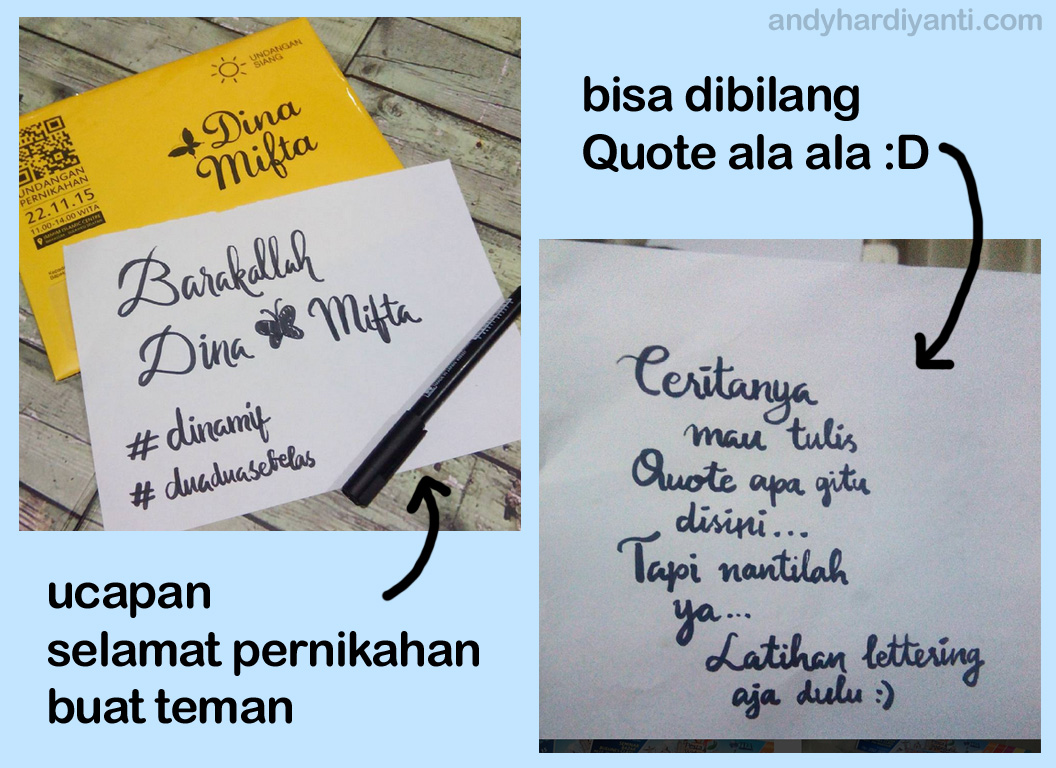 andyhardiyanti.com
UNDANGAN
SIANG
Dina
Mifta
UNDANGAN
PERNIKAHAN
22.11.15
11.00-14.00 WITA
Barakallah
Dina Mifta
# dinamif
# duaduasebelas
ucapan
selamat pernikahan
buat teman
bisa dibilang
Quote ala ala :D
Ceritanya
mau tulis
Quote apa gitu
disini...
Tapi nantilah
ya...
Latihan lettering
aja dulu :)